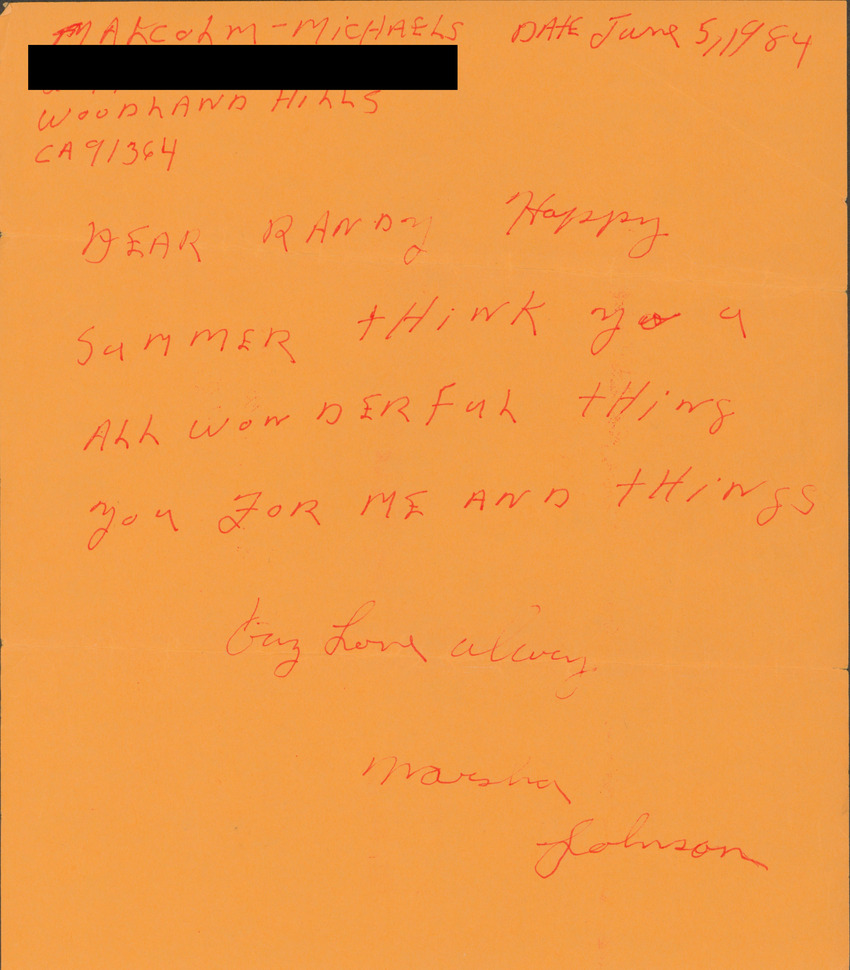 MALCOLM-MICHAELS DATE June 5, 1984
WOODLAND HILLS
CA 91364
DEAR RANDy Happy
SuMMER tHiNK yo u
ALL WONDERFuL tHiNg
you FOR ME AND tHiNgS
Love alway
Marsha
Johnson